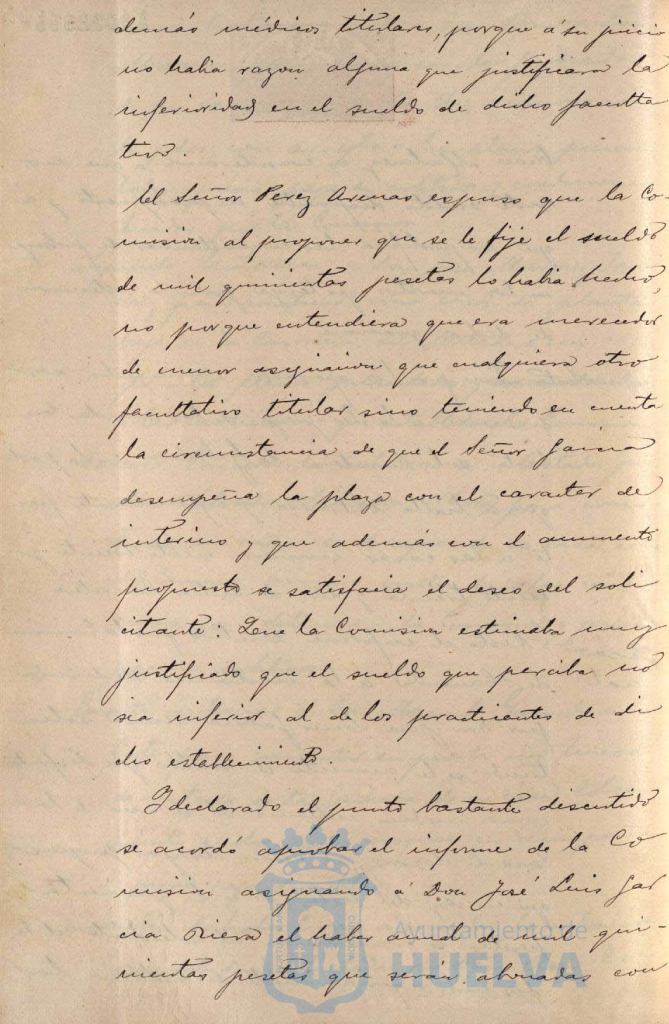 demás médicos titulares, porque á su juicio
no habia razon alguna que justificara la
inferioridad en el sueldo de dicho faculta
tivo.
El Señor Perez Arenas expuso que la Co-
mision al proponer que se le fije el sueldo
de mil quinientas pesetas lo habia hecho,
no porque entendiera que era merecedor
de menor asignacion que cualquiera otro
facultativo titular sino teniendo en cuenta
la circunstancia de que el Señor Garcia
desempeña la plaza con el caracter de
interino y que además con el aumento
propuesto se satisfacia el deseo del soli
citante: Que la Comision estimaba muy
justificado que el sueldo que perciba no
sea inferior al de los practicantes de di
cho establecimiento.
Y declarado el punto bastante discutido
se acordó aprobar el informe de la Co
mision asignando á Don José Luis Gar
cia Riera el haber anual de mil qui-
nientas pesetas que serán abonadas con
Ayuntamiento de
HUELVA